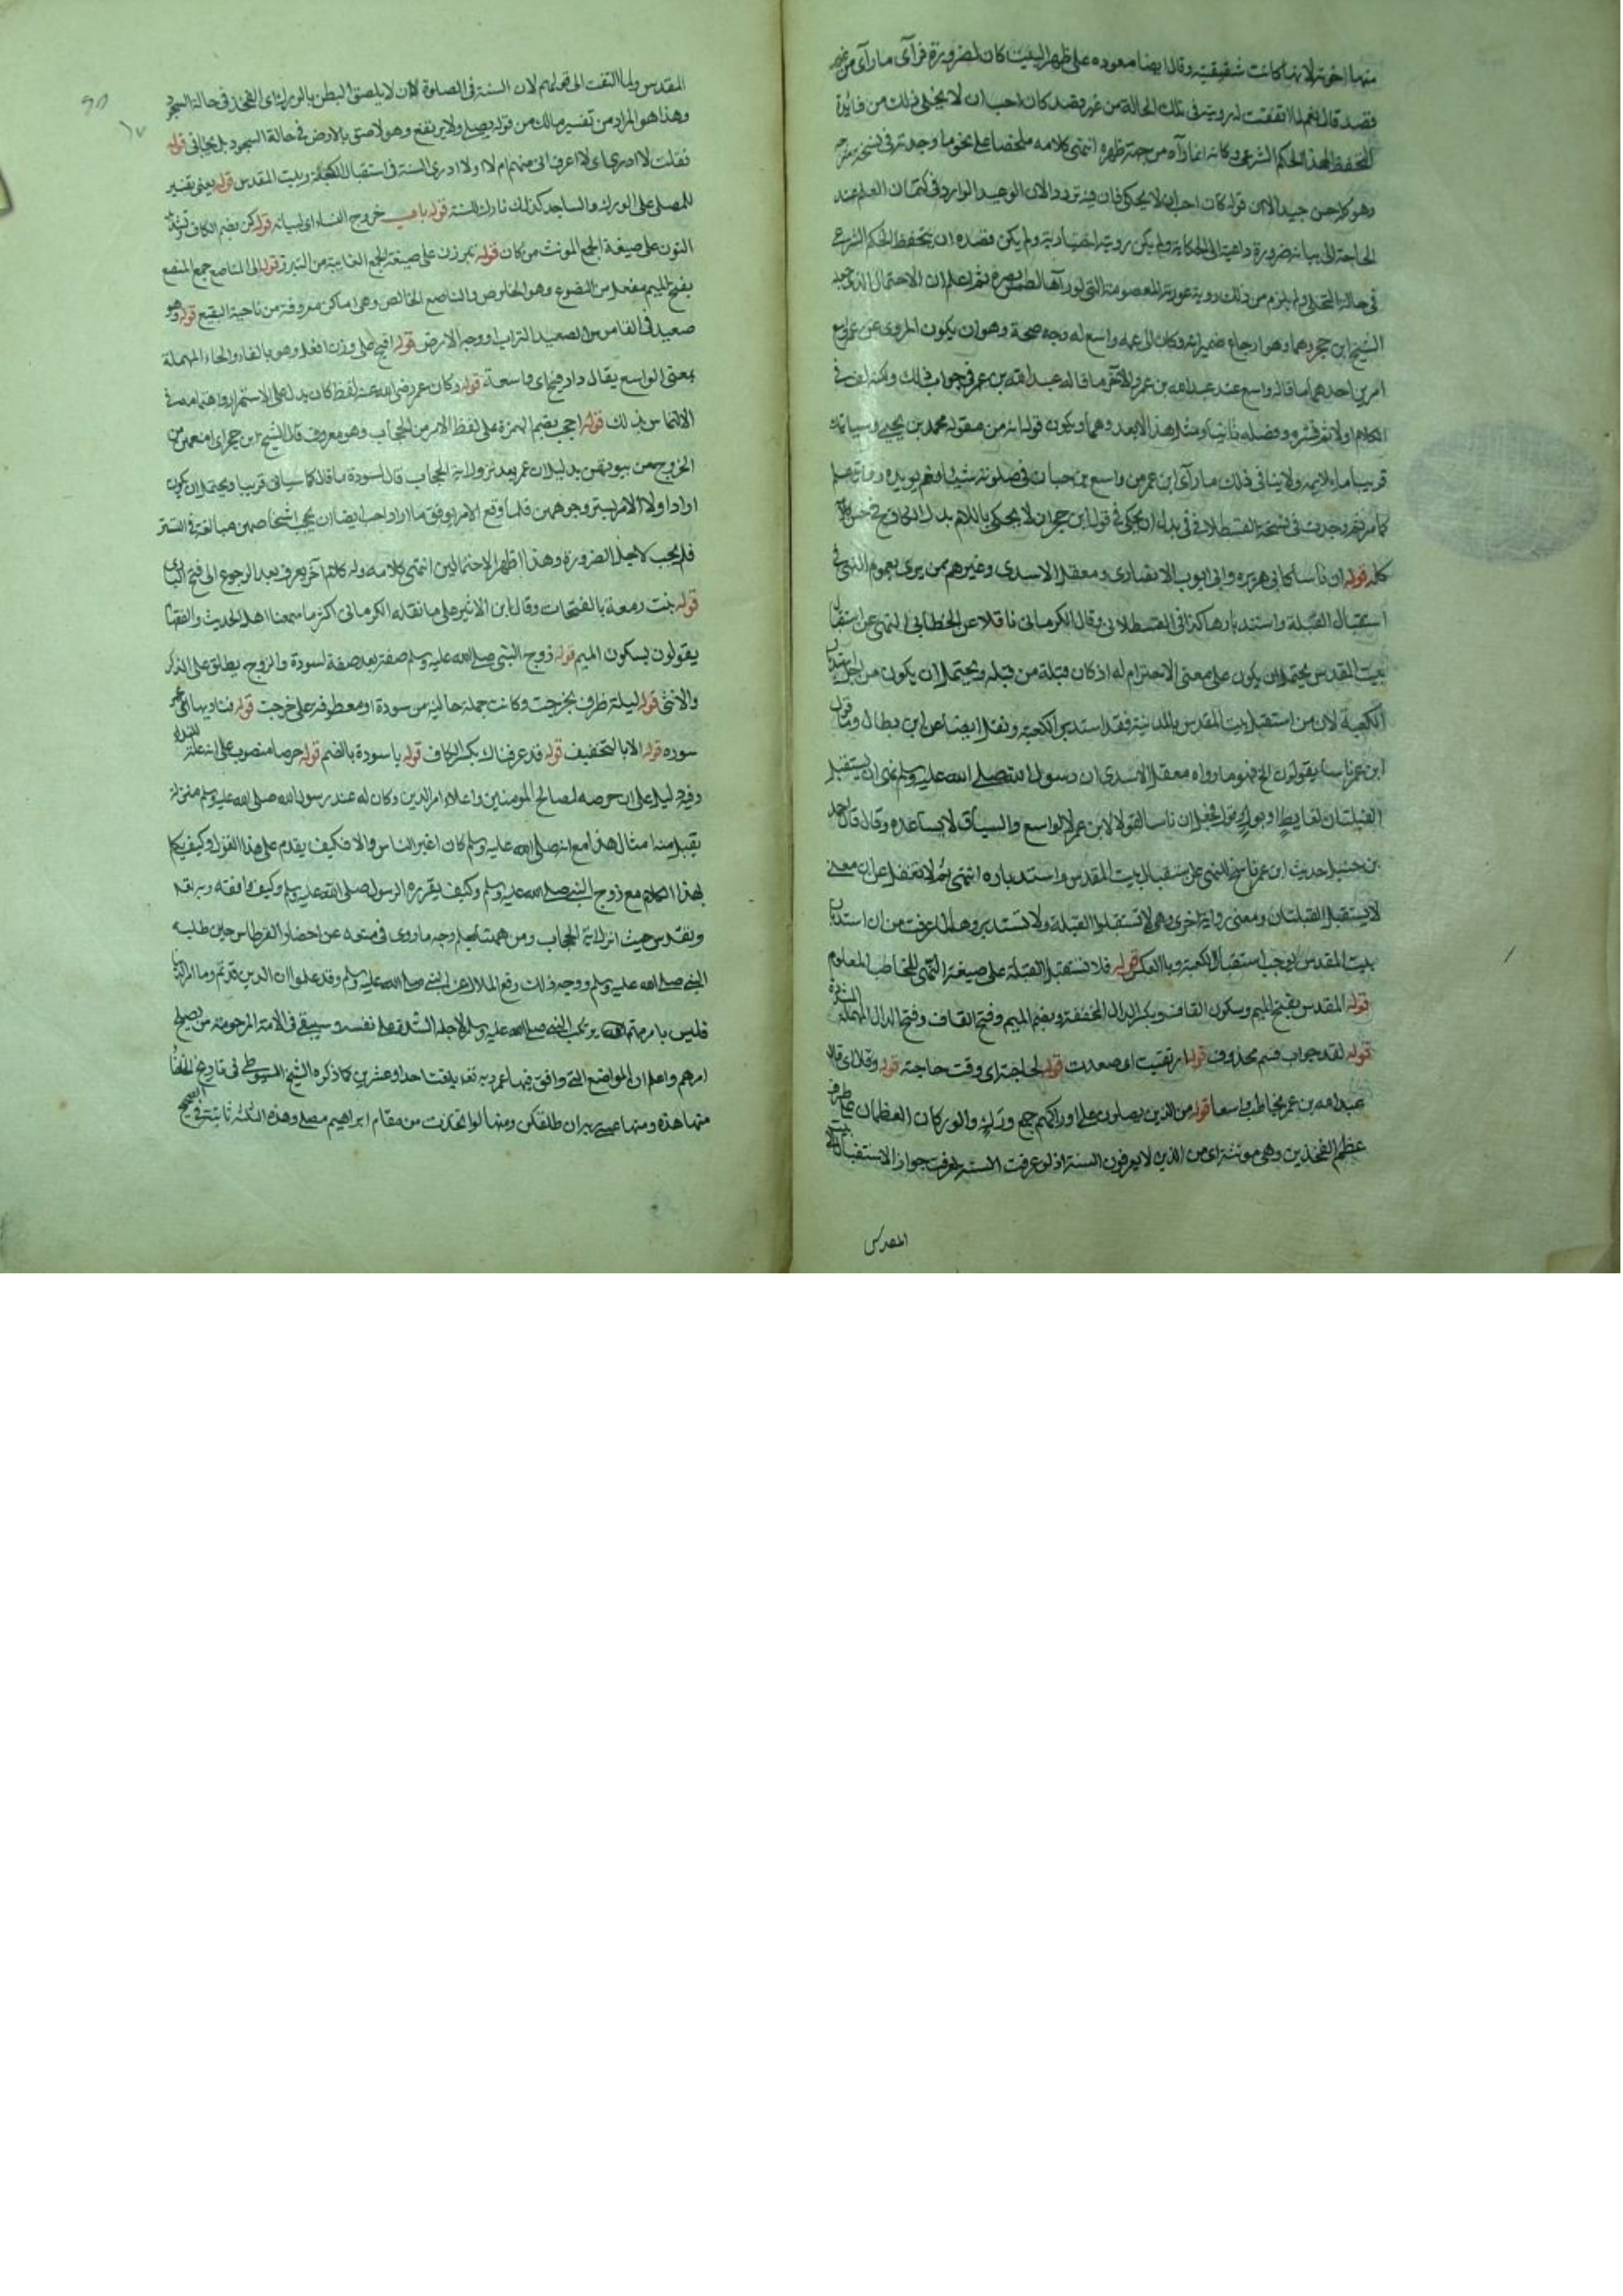 منها اخوته لانها كانت شقيقته وقال ايضا صعوده على ظهر البيت كان لضرورة فرآى ما رآى من غير
قصد قال نعم لما اتفقت له رويته في تلك الحالة من غير قصد كان احب ان لا يخلى ذلك من فايدة
التحفظ لهذا الحكم الشرعى وكانه انما رآه من جهة ظهره انتهى كلامه ملخصا على نحو ما وجدته في نسخة
وهو كلام حسن جيد الا ان قوله كان احب ان لا يحكى فان فيه تردد الان الوعيد الوارد في كتمان العلم عند
الحاجة الى بيانه ضرورة داعية الى الحكاية ولم يكن رويته اختيارية ولم يكن قصده ان يتحفظ الحكم الشرعى
في حالة التخلى ولم يلزم من ذلك روية عورته المعصومة التي لو رآها لطمس بصره ثم اعلم ان الاحتمال الذى
الشيخ ابن حجر وهما وهو ارجاع ضمير انه وكان الى عمه واسع له وجه صحة وهو ان يكون المروى عن عم واسع
امرين احدهما ما قاله واسع عند عبد الله بن عمر والآخر ما قاله عبد الله بن عمر في جواب ذلك ولكنه لف في
الكلام اولا ثم فسره وفصله ثانيا ومثل هذا لا يعد وهما ويكون قوله انه من مقوله محمد بن يحيى وسياتيك
قريبا ما يلايمه ولا ينافي ذلك ما رآى ابن عمر من واسع بن حبان في صلوته شيئا
كما مر ثم وجدت في نسخة القسطلاني في بدل ان يحكى في قول ابن حجر ان لا يحكى باللام بدل
كله قوله ان ناسا كابى هريره وابى ايوب الانصارى ومعقل الاسدى وغيرهم ممن يرى بعموم النهى في
استقبال القبلة واستدبارها كذا في القسطلانى وقال الكرمانى ناقلا عن الخطابى النهى عن استقبال
بيت المقدس يحتمل ان يكون على معنى الاحترام له اذ كان قبلة من قبل ويحتمل ان يكون من اجل استدبار
الكعبة لان من استقبل بيت المقدس بالمدينة فقد استدبر الكعبة ونقل ايضا عن ابن بطال واما قول
ابن عمر ناسا يقولون الخ فهو ما رواه معقل الاسدى ان رسول الله صلى الله عليه وسلم نهى ان يستقبل
القبلتان لغايط او بول فجعل ان ناسا القول لابن عمر لا لواسع والسياق لا يساعده وقال قال احمد
بن حنبل حديث ابن عمر ناسخ للنهى عن استقبال بيت المقدس واستدباره انتهى ثم لا تغفل عن ان معنى
لا يستقبل القبلتان ومعنى رواية اخرى وهى لا تستقبلوا القبلة ولا تستدبروها لما عرفت من ان استدبار
بيت المقدس يوجب استقبال الكعبة وبالعكس قوله فلا تستقبل القبلة على صيغة النهى للمخاطب المعلوم
قوله المقدس بفتح الميم وسكون القاف وبكسر الدال المخففة وبضم الميم وفتح القاف وفتح الدال المهملة المشددة
قوله لقد جواب قسم محذوف قوله ارتقيت اى صعدت قوله لحاجته اى وقت حاجته قوله وقال اى قال
عبد الله بن عمر يخاطب واسعا قوله من الذين يصلون على اوراكهم جمع ورك والوركان العظمان على طرف
عظم الفخذين وهى مونثة اى من الذين لا يعرفون السنة اذ لو عرفت السنة لعرفت جواز الاستقبال لبيت
المقدس
المقدس ولما التفت الى قولهم لان السنة في الصلوة لان لا يلصق البطن بالورك اى الفخذ في حالة السجود
وهذا هو المراد من تفسير مالك من قوله يصلى ولا يرتفع وهو لاصق بالارض في حالة السجود بل يتجافى قوله
فقلت لا ادرى اى لا اعرف انى منهم ام لا او لا ادرى السنة في استقبال الكعبة وبيت المقدس قوله يعنى تفسير
للمصلى على الورك والساجد كذلك تارك للسنة قوله باب خروج النساء اى لبيانه قوله كن بضم الكاف وتشديد
النون على صيغة الجمع المونث من كان قوله تبرزن على صيغة الجمع الغايبة من التبرز قوله الى المناصع جمع المنصع
بفتح الميم مفعل من النصوع وهو الخلوص والناصع الخالص وهى اماكن معروفة من ناحية البقيع قوله وهو
صعيد في القاموس الصعيد التراب او وجه الارض قوله افيح على وزن افعل وهو بالفاء والحاء المهملة
بمعنى الواسع يقال دار فيحاى واسعة قوله وكان عمر رضى الله عنه لفظ كان يدل على الاستمرار واهتمامه في
الالتماس بذلك قوله احجب بضم الهمزة على لفظ الامر من الحجاب وهو معروف قال الشيخ ابن حجر اى امنعهن من
الخروج من بيوتهن بدليل ان عمر بعد نزول اية الحجاب قال لسودة ما قال كما سياتى قريبا ويحتمل ان يكون
اراد اولا الامر بستر وجوههن فلما وقع الامر بوفق ما اراد احب ايضا ان يحجب اشخاصهن مبالغة في الستر
فلم يجب لاجل الضرورة وهذا اظهر الاحتمالين انتهى كلامه وله كلام آخر يعرف بعد الرجوع الى فتح البارى
قوله بنت زمعة بالفتحات وقال ابن الاثير على ما نقله الكرمانى اكثر ما سمعنا اهل الحديث والفقها
يقولون بسكون الميم قوله زوج النبى صلى الله عليه وسلم صفة بعد صفة لسودة والزوج يطلق على الذكر
والانثى قوله ليلة ظرف بخرجت وكانت جملة حالية من سودة او معطوفة على خرجت قوله فناداها عمر
سوده قوله الا بالتخفيف قوله قد عرفناك بكسر الكاف قوله يا سودة بالضم قوله حرصا منصوب على انه علة للنداء
وفيه دليل على ان حرصه لمصالح المومنين واعلاء امر الدين وكان له عند رسول الله صلى الله عليه وسلم منزلة
يقبل منه امثال هذا مع انه صلى الله عليه وسلم كان اغير الناس والا فكيف يقدم على هذا القول وكيف يتكلم
بهذا الكلام مع زوج النبى صلى الله عليه وسلم وكيف يقرره الرسول صلى الله عليه وسلم وكيف وافقه ربه تعالى
وتقدس حيث انزل اية الحجاب ومن هنا يعلم وجه ما روى في منعه عن احضار القرطاس حين طلبه
النبى صلى الله عليه وسلم ووجه ذلك رفع الملال عن النبى صلى الله عليه وسلم وقد علموا ان الدين قد تم
فليس يا مرهم يرتكب النبى صلى الله عليه وسلم لاجله الشدة على نفسه وسيبقى في الامة المرحومة من يصلح
امرهم واعلم ان المواضع التى وافق فيها عمر ربه تعالى بلغت احدا وعشرين كما ذكره الشيخ السيوطى في تاريخ الخلفا
منها هذه ومنها عسى ربه ان طلقكن ومنها لو اتخذت من مقام ابراهيم مصلى وهذه الثلثة ثابتة في الصحيح